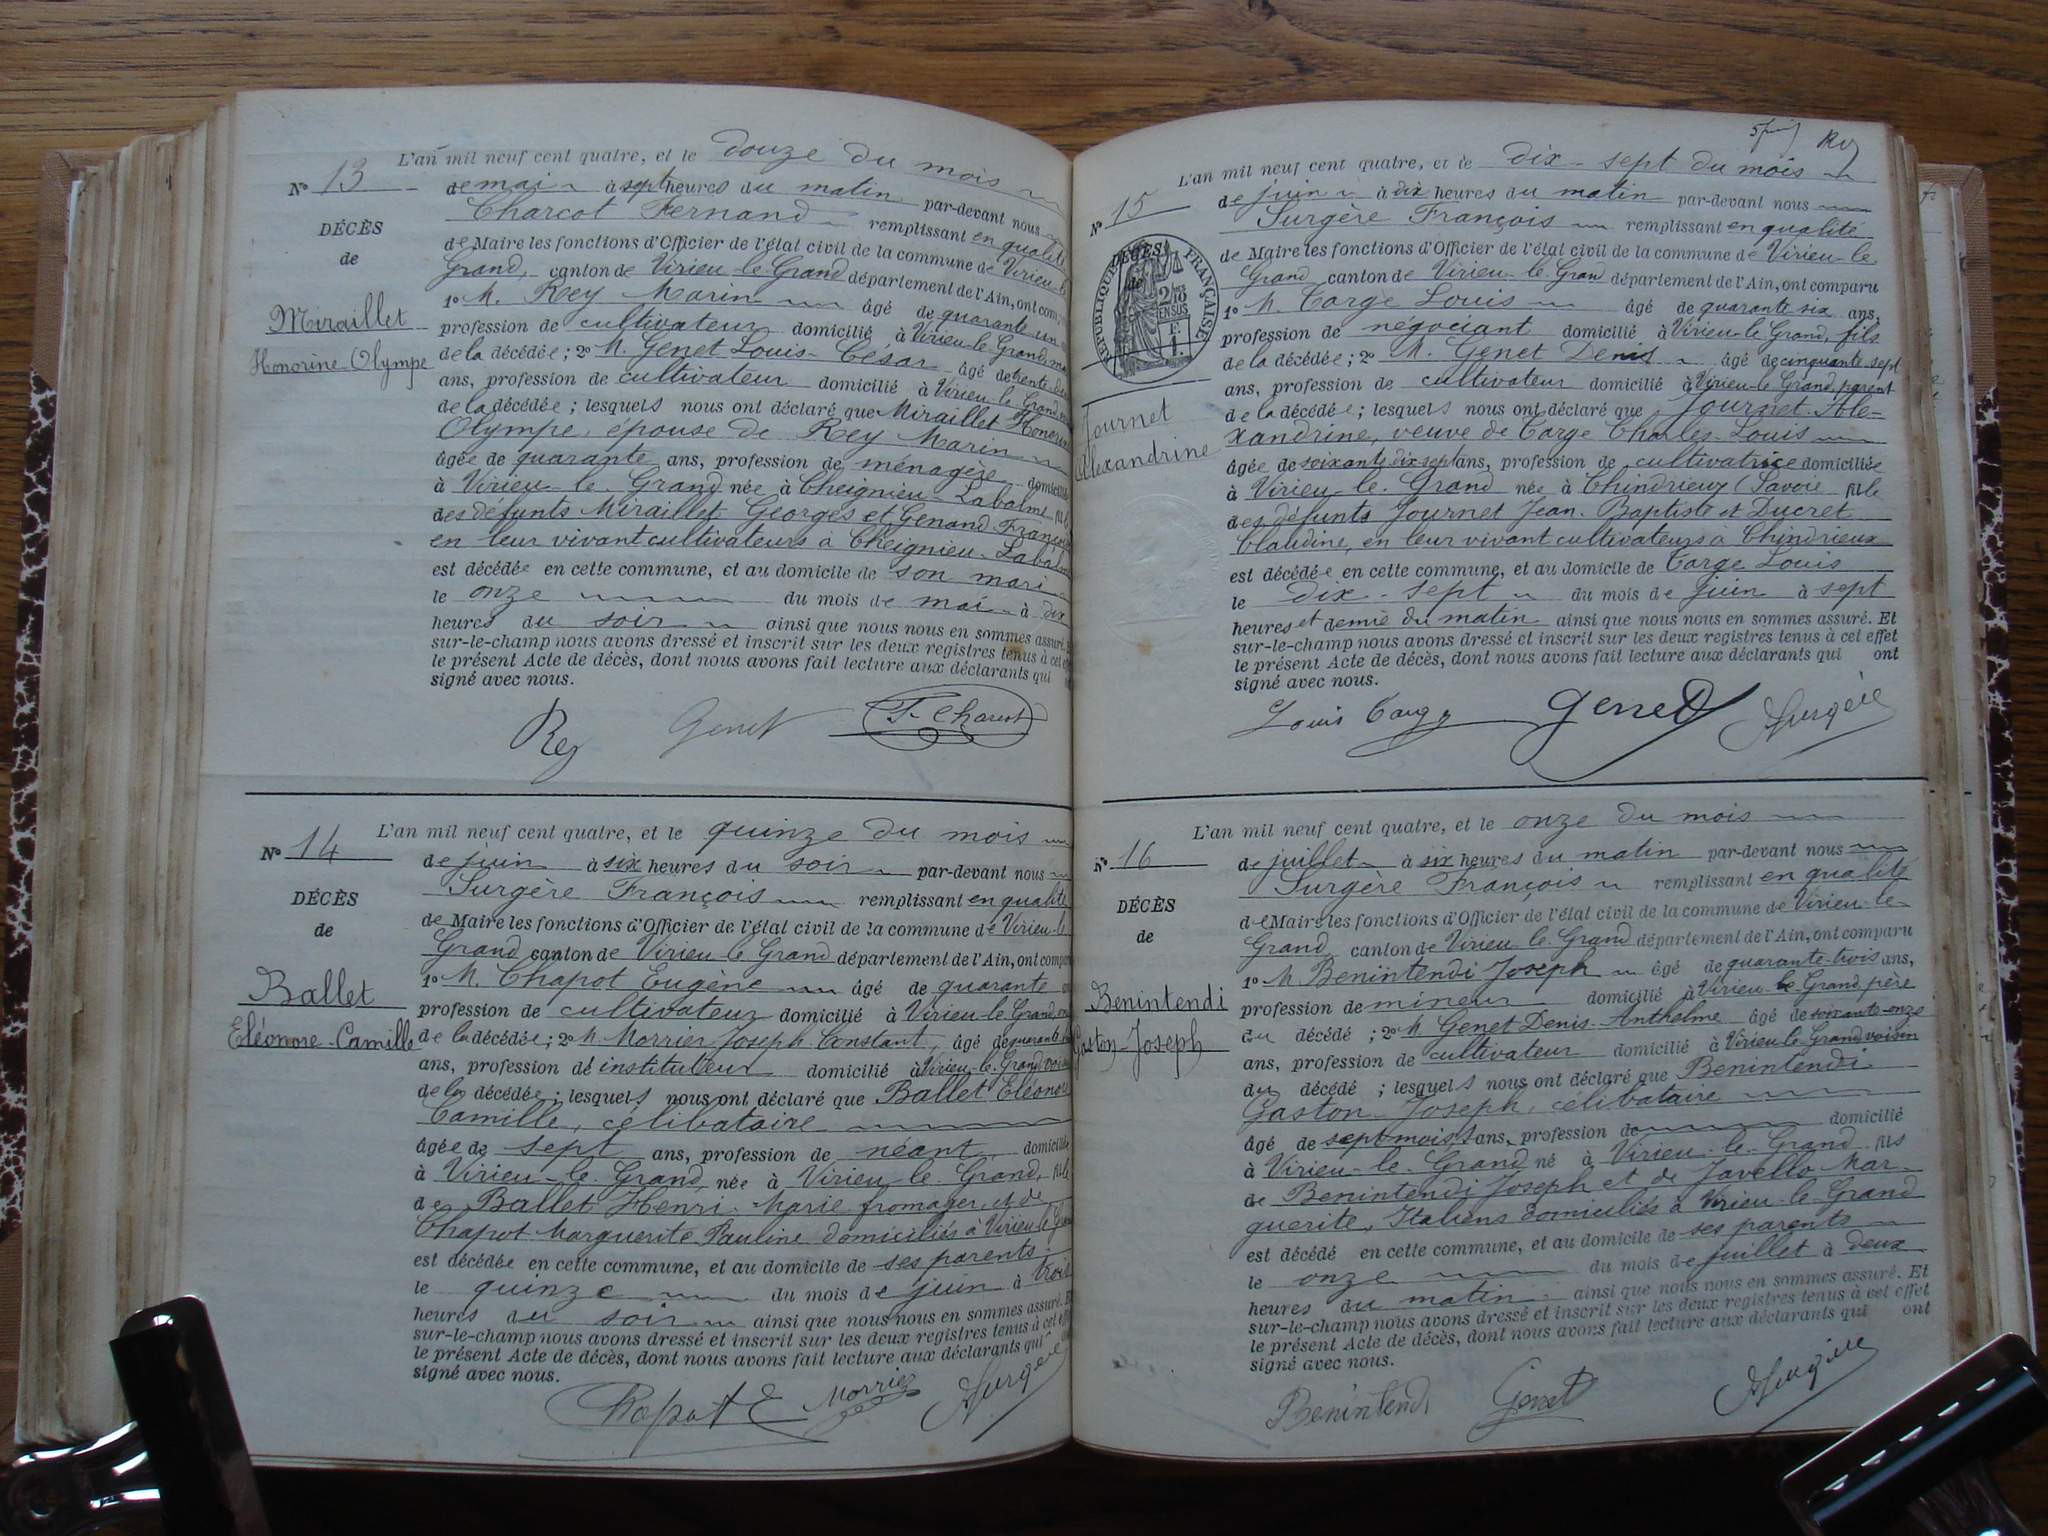 Nº 13
DÉCÈS
de
Miraillet
Honorine Olympe
L'an mil neuf cent quatre, et le douze du mois
de mai à sept heures du matin par-devant nous
Charcot Fernand remplissant en qualité
de Maire les fonctions d'Officier de l'état civil de la commune de Virieu-le
Grand, canton de Virieu-le-Grand département de l'Ain, ont
1º M. Rey Marin âgé de quarante un
profession de cultivateur domicilié à Virieu-le-Grand,
de la décédée; 2º M. Genet Louis-César âgé de
ans, profession de cultivateur domicilié à Virieu-le-Grand,
de la décédée; lesquels nous ont déclaré que Miraillet
Olympe, épouse de Rey Marin
âgée de quarante ans, profession de ménagère
à Virieu-le-Grand née à Cheignieu-Labalme
des défunts Miraillet Georges et Genand
en leur vivant cultivateurs à Cheignieu-
est décédée en cette commune, et au domicile de son mari
le onze du mois de mai à dix
heures du soir ainsi que nous nous en sommes assuré.
sur-le-champ nous avons dressé et inscrit sur les deux registres tenus à cet
le présent Acte de décès, dont nous avons fait lecture aux déclarants qui
signé avec nous.
Rey Genet F. Charcot
Nº 14
DÉCÈS
de
Ballet
Eléonore-Camille
L'an mil neuf cent quatre, et le quinze du mois
de juin à six heures du soir par-devant nous
Surgère François remplissant en qualité
de Maire les fonctions d'Officier de l'état civil de la commune de Virieu-le
Grand canton de Virieu-le-Grand département de l'Ain, ont
1º M. Chapot Eugène âgé de quarante
profession de cultivateur domicilié à Virieu-le-Grand,
de la décédée; 2º M. Morrier Joseph Constant, âgé de
ans, profession de instituteur domicilié à Virieu-le-Grand,
de la décédée; lesquels nous ont déclaré que Ballet Eléonore
Camille, célibataire
âgée de sept ans, profession de néant
à Virieu-le-Grand née à Virieu-le-Grand,
de Ballet Henri-Marie fromager, et de
Chapot Marguerite Pauline domiciliés à Virieu-le-
est décédée en cette commune, et au domicile de ses parents
le quinze du mois de juin à trois
heures du soir ainsi que nous nous en sommes assuré.
sur-le-champ nous avons dressé et inscrit sur les deux registres tenus à cet
le présent Acte de décès, dont nous avons fait lecture aux déclarants qui
signé avec nous.
Chapot E Morrier Surgère
Rey
Nº 15
DÉCÈS
de
RÉPUBLIQUE FRANÇAISE
2/10
EN SUS
Journet
Alexandrine
L'an mil neuf cent quatre, et le dix-sept du mois
de juin à dix heures du matin par-devant nous
Surgère François remplissant en qualité
de Maire les fonctions d'Officier de l'état civil de la commune de Virieu-le
Grand canton de Virieu-le-Grand département de l'Ain, ont comparu
1º M. Targe Louis âgé de quarante six ans,
profession de négociant domicilié à Virieu-le-Grand, fils
de la décédée; 2º M. Genet Denis âgé de cinquante-sept
ans, profession de cultivateur domicilié à Virieu-le-Grand, parent
de la décédée; lesquels nous ont déclaré que Journet Ale-
xandrine, veuve de Targe Charles-Louis
âgée de soixante dix sept ans, profession de cultivatrice domiciliée
à Virieu-le-Grand née à Chindrieux (Savoie fille
des défunts Journet Jean-Baptiste et Ducret
Claudine, en leur vivant cultivateurs à Chindrieux
est décédée en cette commune, et au domicile de Targe Louis
le dix-sept du mois de juin à sept
heures et demie du matin ainsi que nous nous en sommes assuré. Et
sur-le-champ nous avons dressé et inscrit sur les deux registres tenus à cet effet
le présent Acte de décès, dont nous avons fait lecture aux déclarants qui ont
signé avec nous.
Louis Targe Genet D Surgère
Nº 16
DÉCÈS
de
Benintendi
Gaston-Joseph
L'an mil neuf cent quatre, et le onze du mois
de juillet à six heures du matin par-devant nous
Surgère François remplissant en qualité
de Maire les fonctions d'Officier de l'état civil de la commune de Virieu-le-
Grand canton de Virieu-le-Grand département de l'Ain, ont comparu
1º M Benintendi Joseph âgé de quarante-trois ans,
profession de mineur domicilié à Virieu-le-Grand père
du décédé; 2º M Genet Denis-Anthelme âgé de soixante-onze
ans, profession de cultivateur domicilié à Virieu-le-Grand voisin
du décédé; lesquels nous ont déclaré que Benintendi
Gaston-Joseph, célibataire
âgé de sept mois ans, profession de domicilié
à Virieu-le-Grand né à Virieu-le-Grand fils
de Benintendi Joseph et de Javello Mar-
guerite, Italiens domiciliés à Virieu-le-Grand
est décédé en cette commune, et au domicile de ses parents
le onze du mois de juillet à deux
heures du matin ainsi que nous nous en sommes assuré. Et
sur-le-champ nous avons dressé et inscrit sur les deux registres tenus à cet effet
le présent Acte de décès, dont nous avons fait lecture aux déclarants qui ont
signé avec nous.
Benintendi Genet Surgère